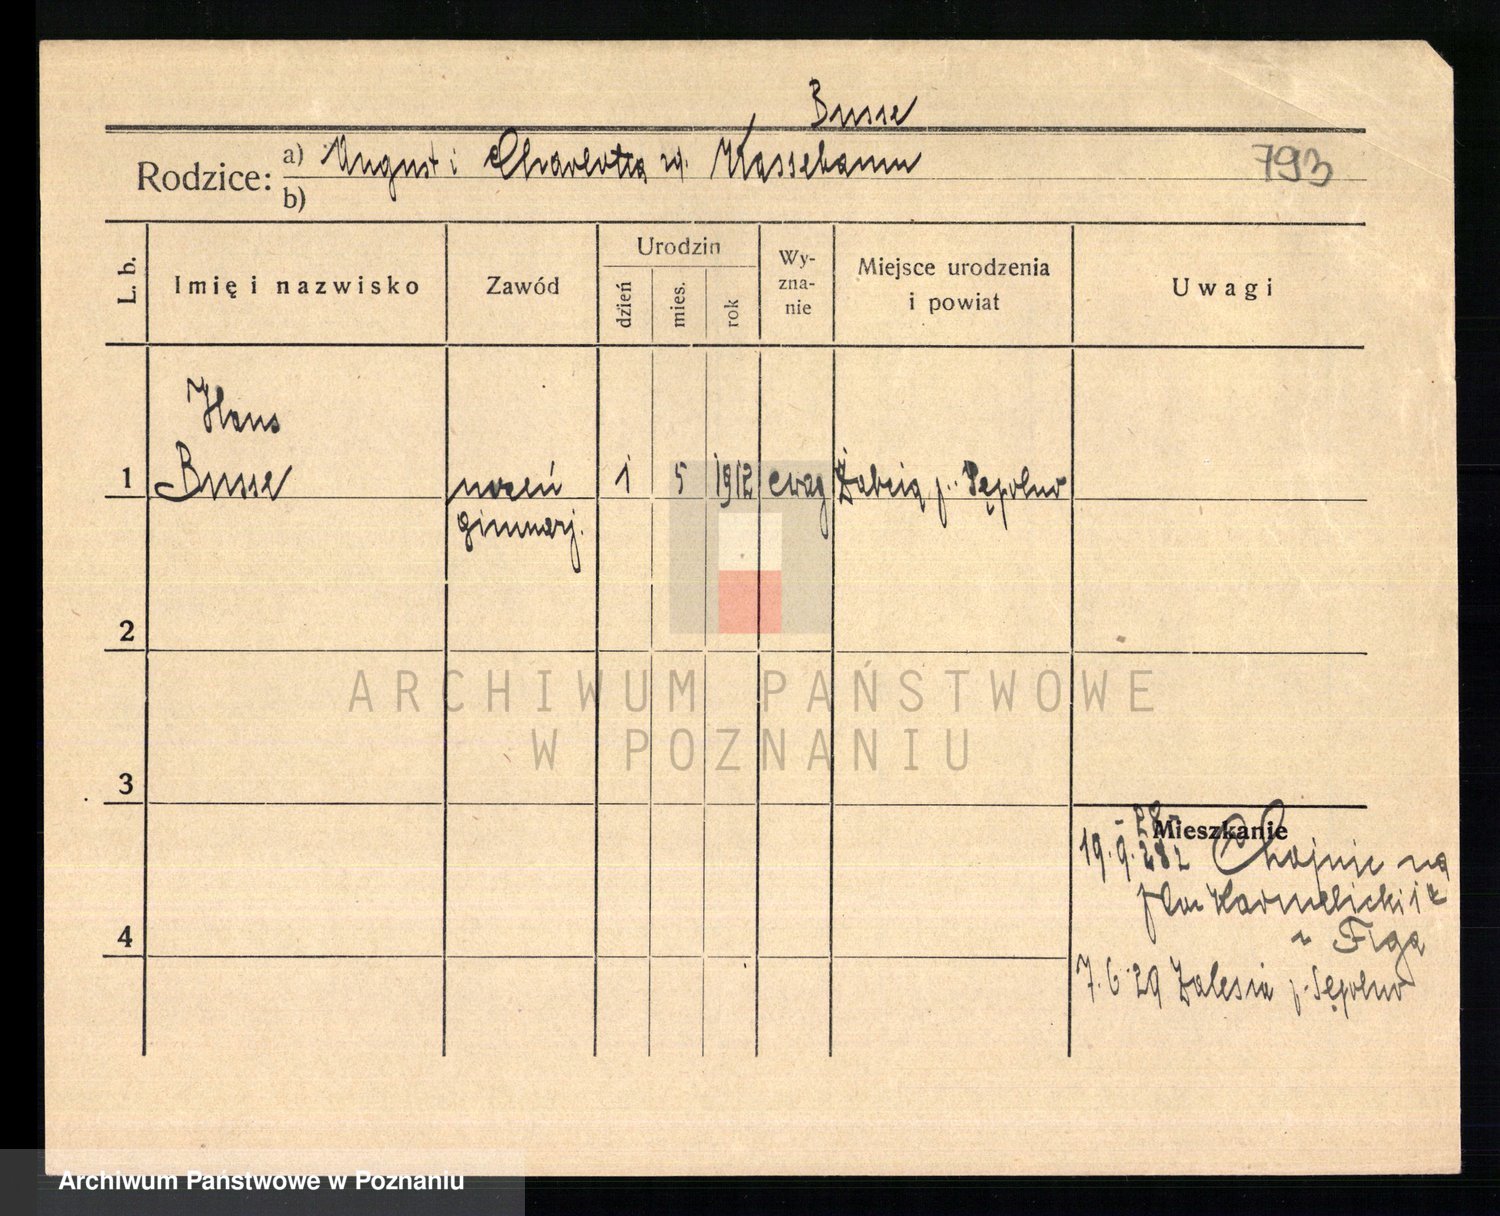 Busse
Rodzice: a) August i Charlotta z d. Kassebaum
793
b)
L. b.
Imię i nazwisko
Zawód
Urodzin
dzień
mies.
rok
Wy-
zna-
nie
Miejsce urodzenia
i powiat
Uwagi
Hans
1 Busse uczeń 1 5 1912 ewag p. Sępolno
gimnazj.
2
ARCHIWUM PAŃSTWOWE
W POZNANIU
3
- 28 -
Mieszkanie
19.9.28 z Chojnic na
Karmelicki
Figa
7.6.29 Zalesia p. Sępolno
4
Archiwum Państwowe w Poznaniu